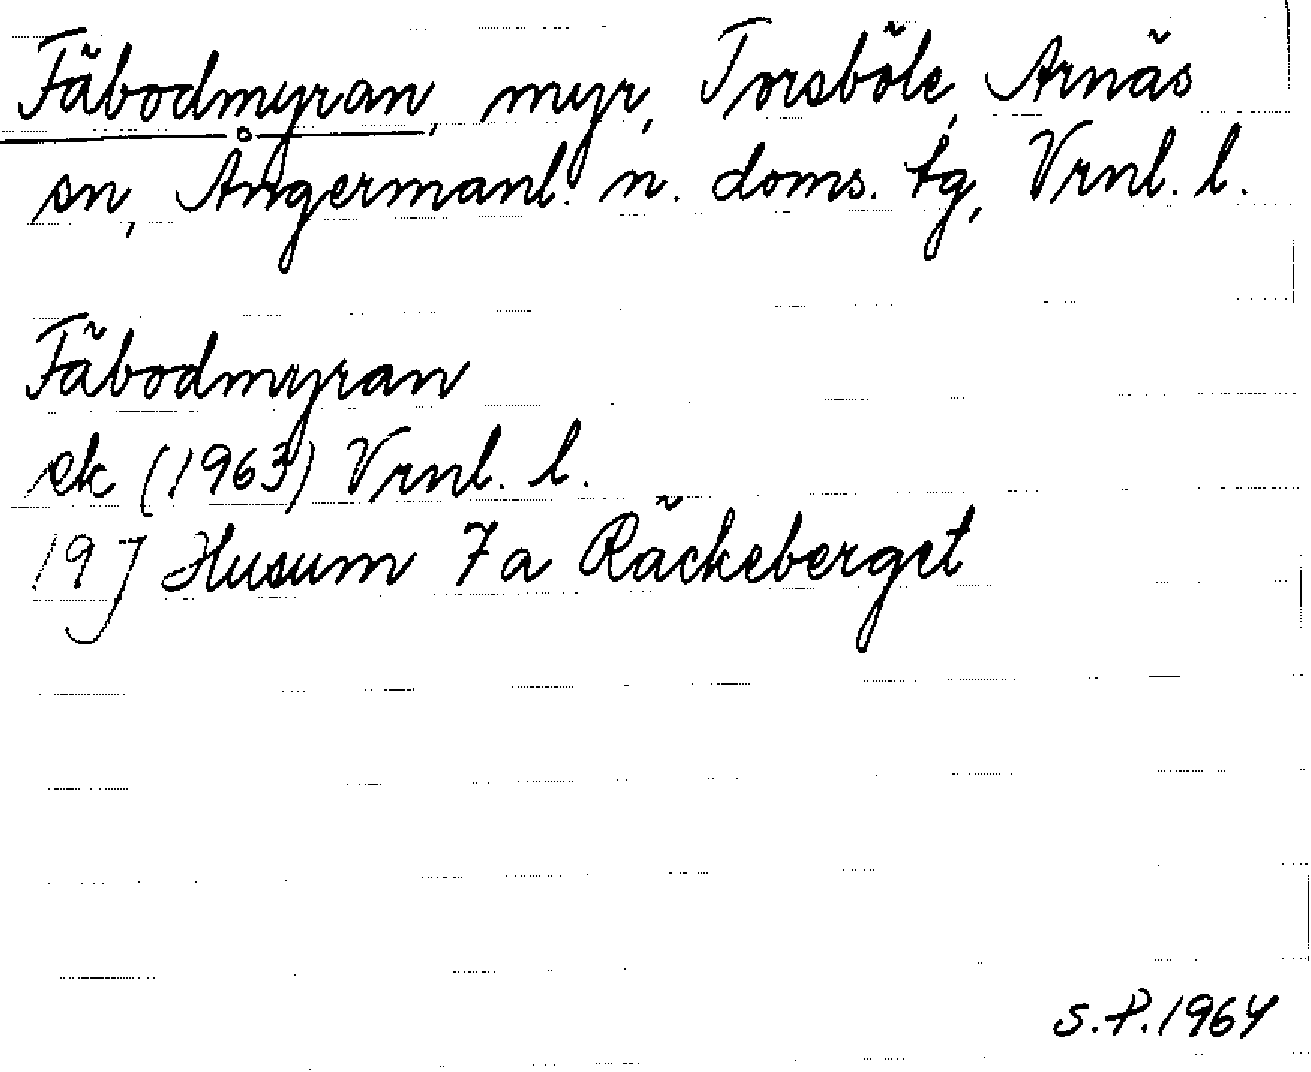 Fäbodmyran, myr, Torsböle, Arnäs
sn, Ångermanl. n. doms. tg, Vrnl. l.
Fäbodmyran
ek (1963) Vrnl. l.
19 J Husum 7a Räckeberget
S.P. 1964